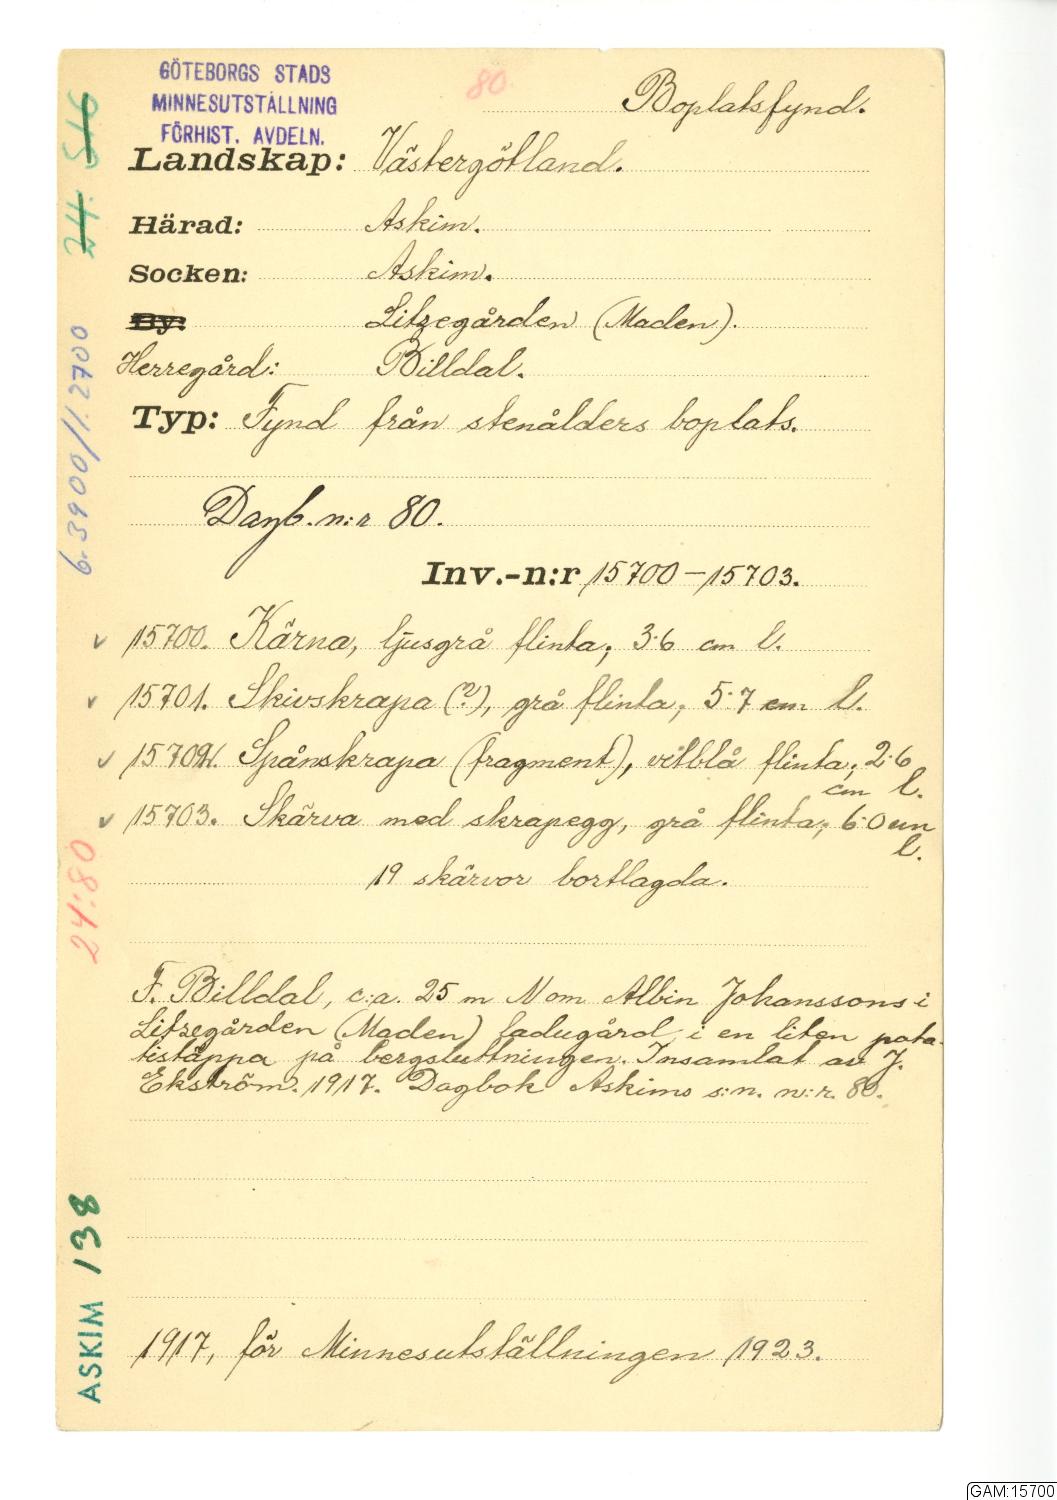 GÖTEBORGS STADS
MINNESUTSTÄLLNING
FÖRHIST. AVDELN.
80
Boplatsfynd.
Landskap: Västergötland.
Härad: Askim.
Socken: Askim.
By: Litzegården (Maden).
Herregård: Billdal.
Typ: Fynd från stenålders boplats.
Dagb. n:r 80.
Inv.-n:r 15700-15703.
v 15700. Kärna, ljusgrå flinta; 3·6 cm l.
v 15701. Skivskrapa (?), grå flinta; 5·7 cm l.
v 15702. Spånskrapa (fragment), vitblå flinta; 2·6
cm l.
v 15703. Skärva med skrapegg, grå flinta; 6·0 cm
l.
19 skärvor bortlagda.
F. Billdal, c:a. 25 m N om Albin Johanssons i
Litzegården (Maden) ladugård, i en liten pota-
tistäppa på bergsluttningen. Insamlat av J.
Ekström. 1917. Dagbok Askims s:n. n:r. 80.
1917, för Minnesutställningen 1923.
24. 516
6.3900/1.2700
24:80
ASKIM 138
GAM:15700